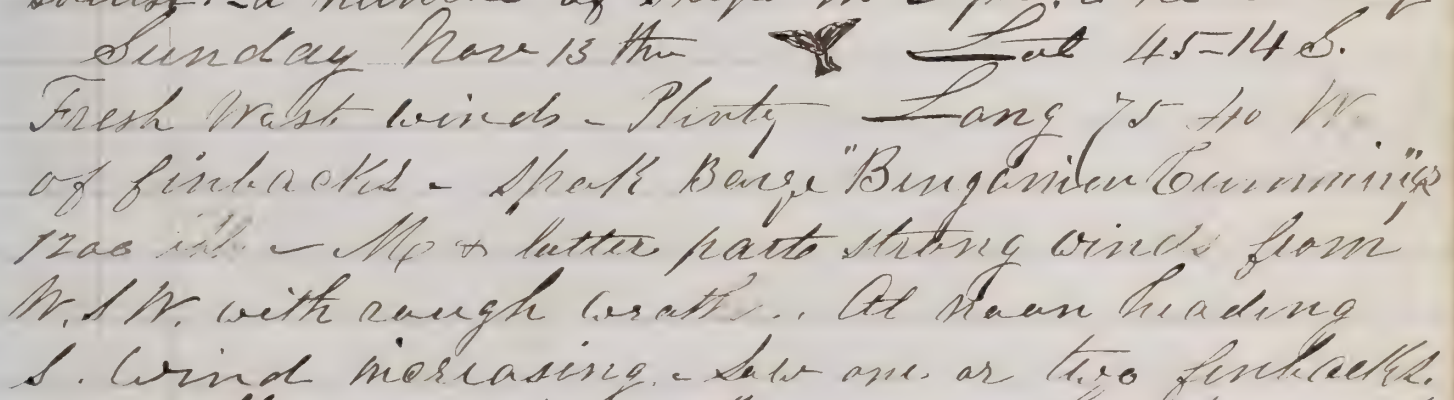 Sunday Nov 13 th Lat 45-14 S.
Fresh West winds - Plenty Long 75 40 W.
of finbacks - spok Barge "Bengamin Cummings"
1200 - Mid & latter parts strong winds from
W.S.W. with rough weath.. At noon heading
S. Wind increasing. - Saw one or two finbacks.